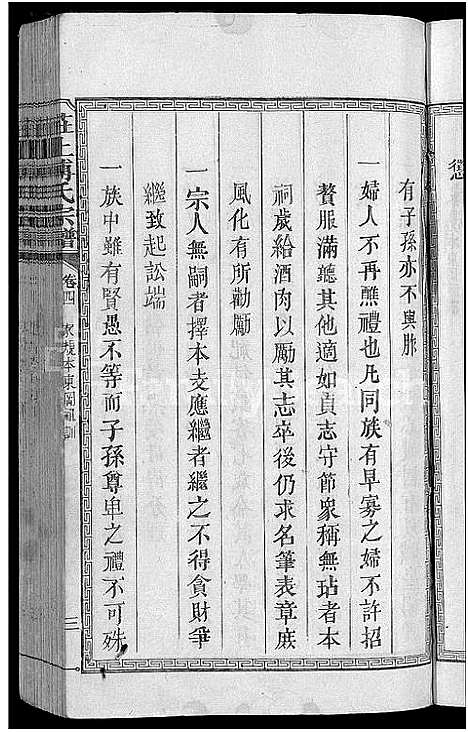 懲
有子孫亦不與胙
一婦人不再醮禮也凡同族有早寡之婦不許招
贅服滿聽其他適如貞志守節衆稱無玷者本
祠歲給酒肉以勵其志卒後仍求名筆表章庻
風化有所勸勵
一宗人無嗣者擇本支應繼者繼之不得貪財爭
繼致起訟端
一族中雖有賢愚不等而子孫尊卑之禮不可殊
氏宗譜
卷四
三